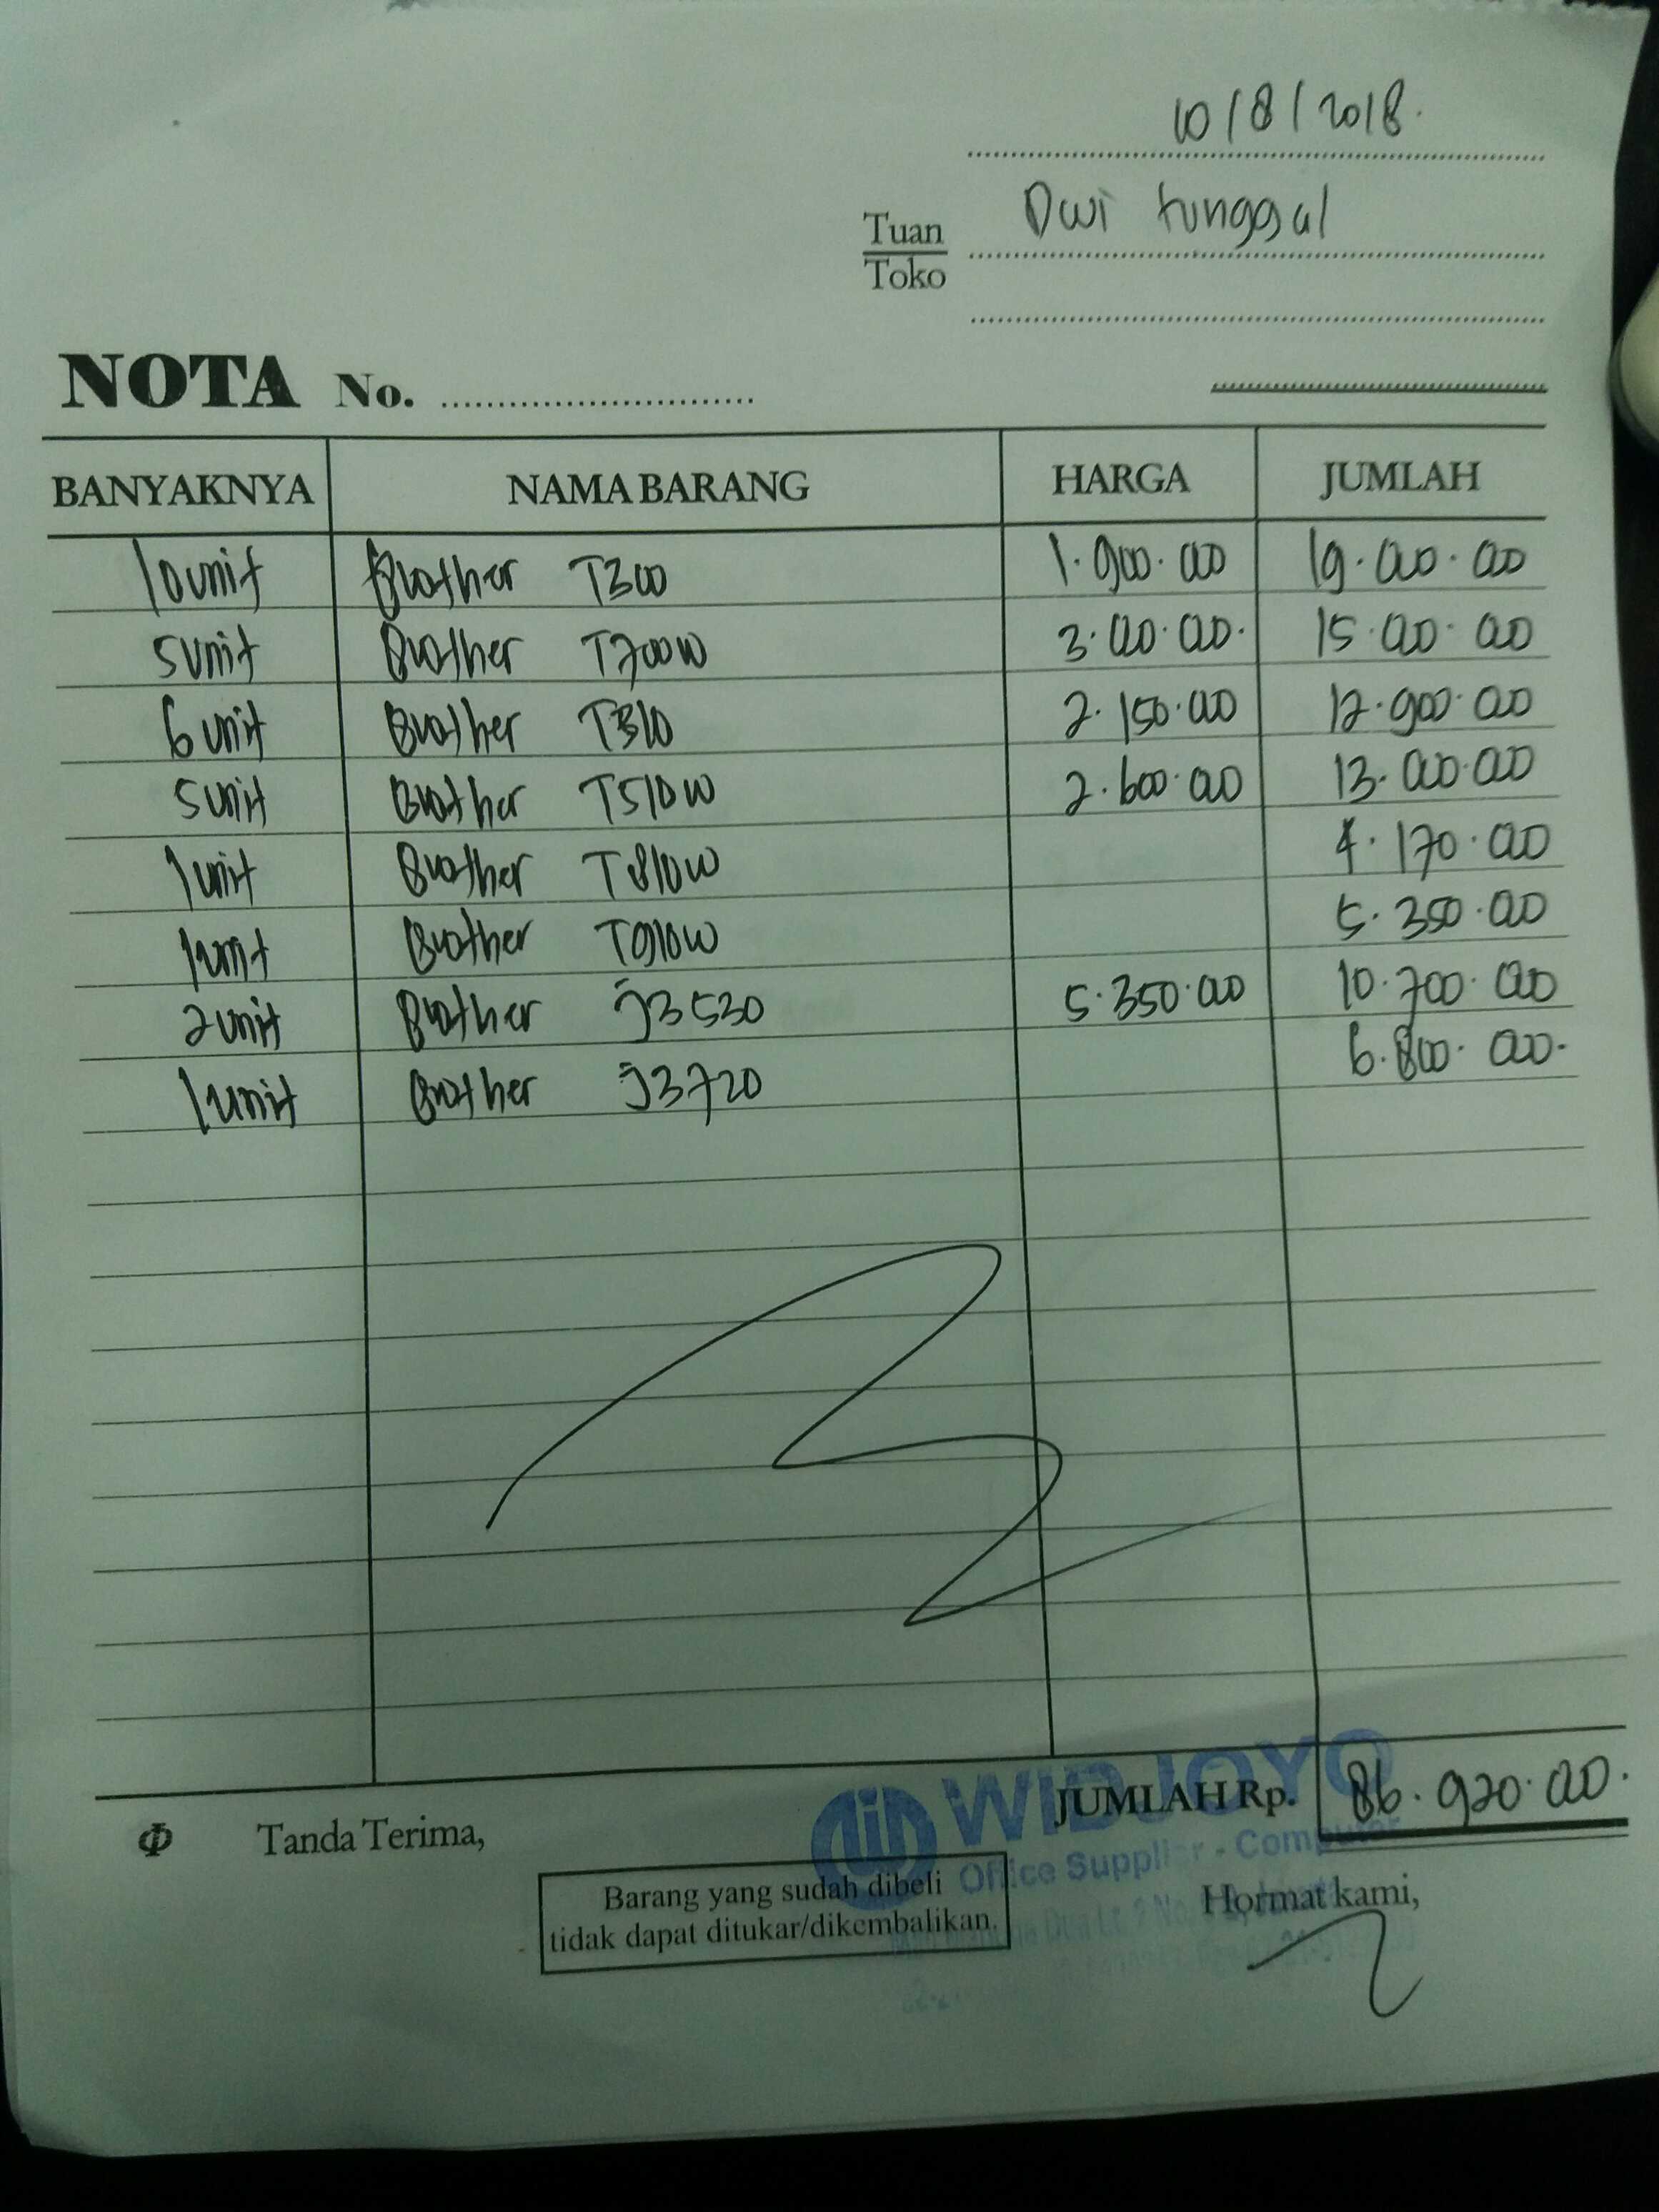 10/8/2018.
Tuan
Toko
Dwi tunggal
NOTA No.
BANYAKNYA NAMA BARANG HARGA JUMLAH
10 unit Brother T300 1.900.000 19.000.000
5 unit Brother T700W 3.000.000. 15.000.000
6 unit Brother T310 2.150.000 12.900.000
5 unit Brother T510W 2.600.000 13.000.000
1 unit Brother T810W 4.170.000
1 unit Brother T910W 5.350.000
2 unit Brother J3530 5.350.000 10.700.000
1 unit Brother J3720 6.800.000.
JUMLAH Rp. 86.920.000.
WIDJOYO
Office Supplier - Computer
Tanda Terima,
Barang yang sudah dibeli
tidak dapat ditukar/dikembalikan.
Hormat kami,